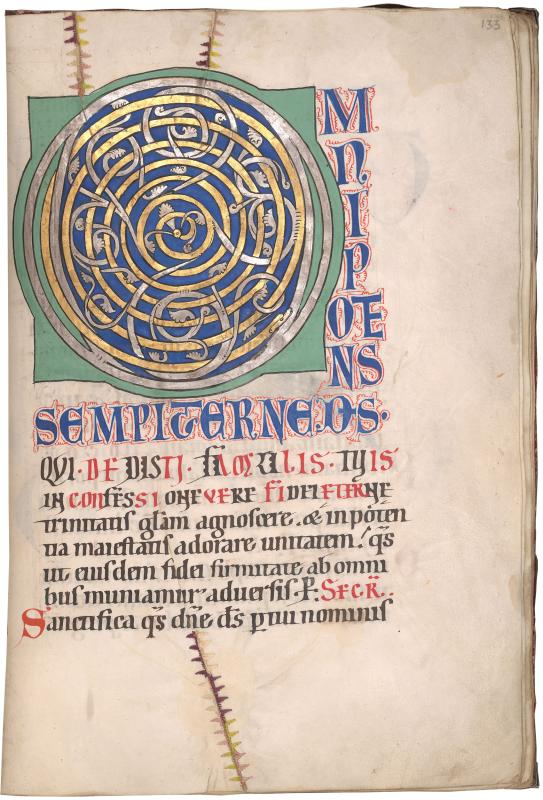 133
O
M
N
I
P
OTE
NS
SEMPITERNE·D̅S·
QVI·DEDISTI·FAMVLIS·TVIS
IN CONFESSIONE VERE FIDEI ETERNE
trinitatis gl̅am agnoscere. & in poten
tia maiestatis adorare unitatem. q̅s
ut eiusdem fidei firmitate ab omni
bus muniamur aduersis. P̅: SECR̅.
Sanctifica q̅s dn̅e d̅s ꝑ tui nominis